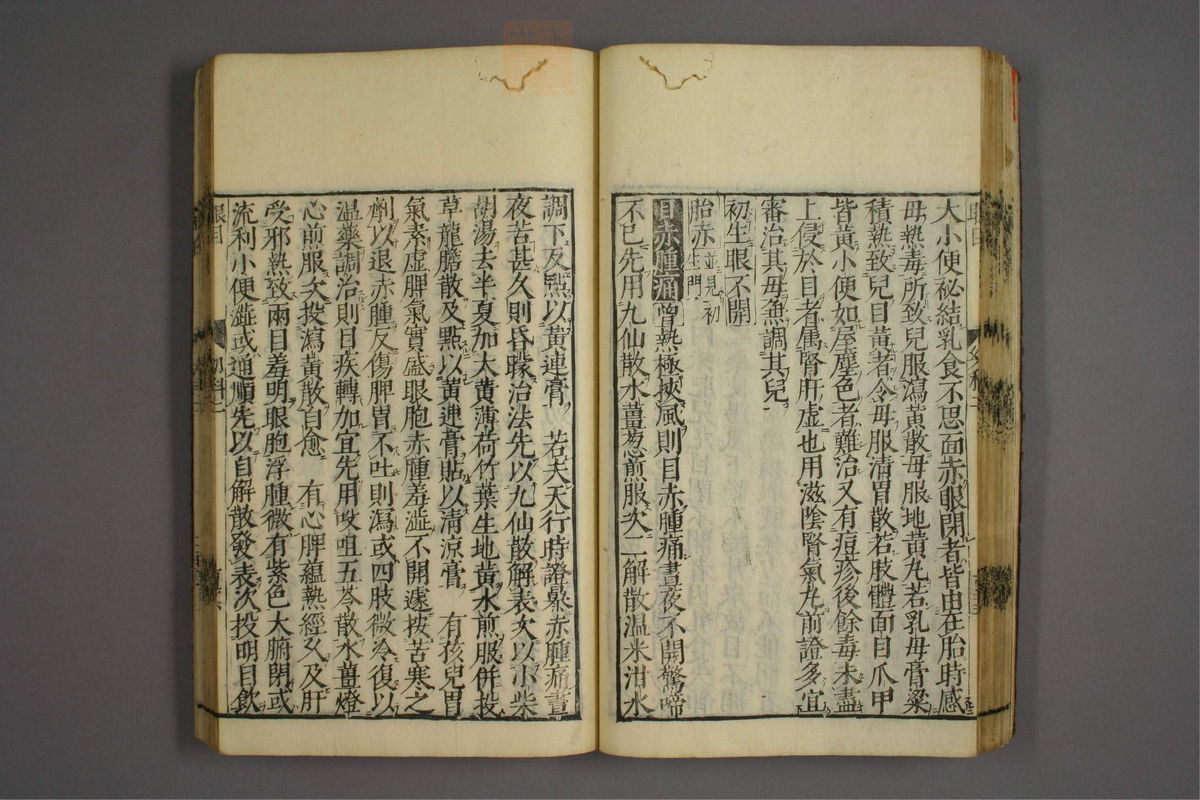 大小便秘結乳食不思面赤眼閉者皆由在胎時感
母熱毒所致兒服瀉黃散母服地黃丸若乳母膏粱
積熱致兒目黃者令母服清胃散若肢體面目爪甲
皆黃小便如屋塵色者難治又有痘疹後餘毒未盡
上侵於目者屬腎肝虛也用滋陰腎氣丸前證多宜
審治其母魚調其兒
初生眼不開
胎赤並見初生門
目赤腫痛曾熱極挾風則目赤腫痛晝夜不開驚啼
不已先用九仙散水薑葱煎服次二解散温米泔水
調下及㸃以黃連膏 若夫天行時證暴赤腫痛晝
夜苦甚久則昏矇治法先以九仙散解表次以小柴
胡湯去半夏加大黃薄荷竹葉生地黃水煎服併投
草龍膽散及㸃以黃連膏貼以清涼膏 有孩兒胃
氣素虛脾氣實盛眼胞赤腫羞澁不開遽投苦寒之
劑以退赤腫反傷脾胃不吐則瀉或四肢微冷復以
温藥調治則目疾轉加宜先用㕮咀五苓散水薑燈
心煎服次投瀉黃散自愈 有心脾蘊熱經久及肝
受邪熱致兩目羞明眼胞浮腫微有紫色大腑閉或
流利小便澁或通順先以自解散發表次投明目飲
眼目
幼科二